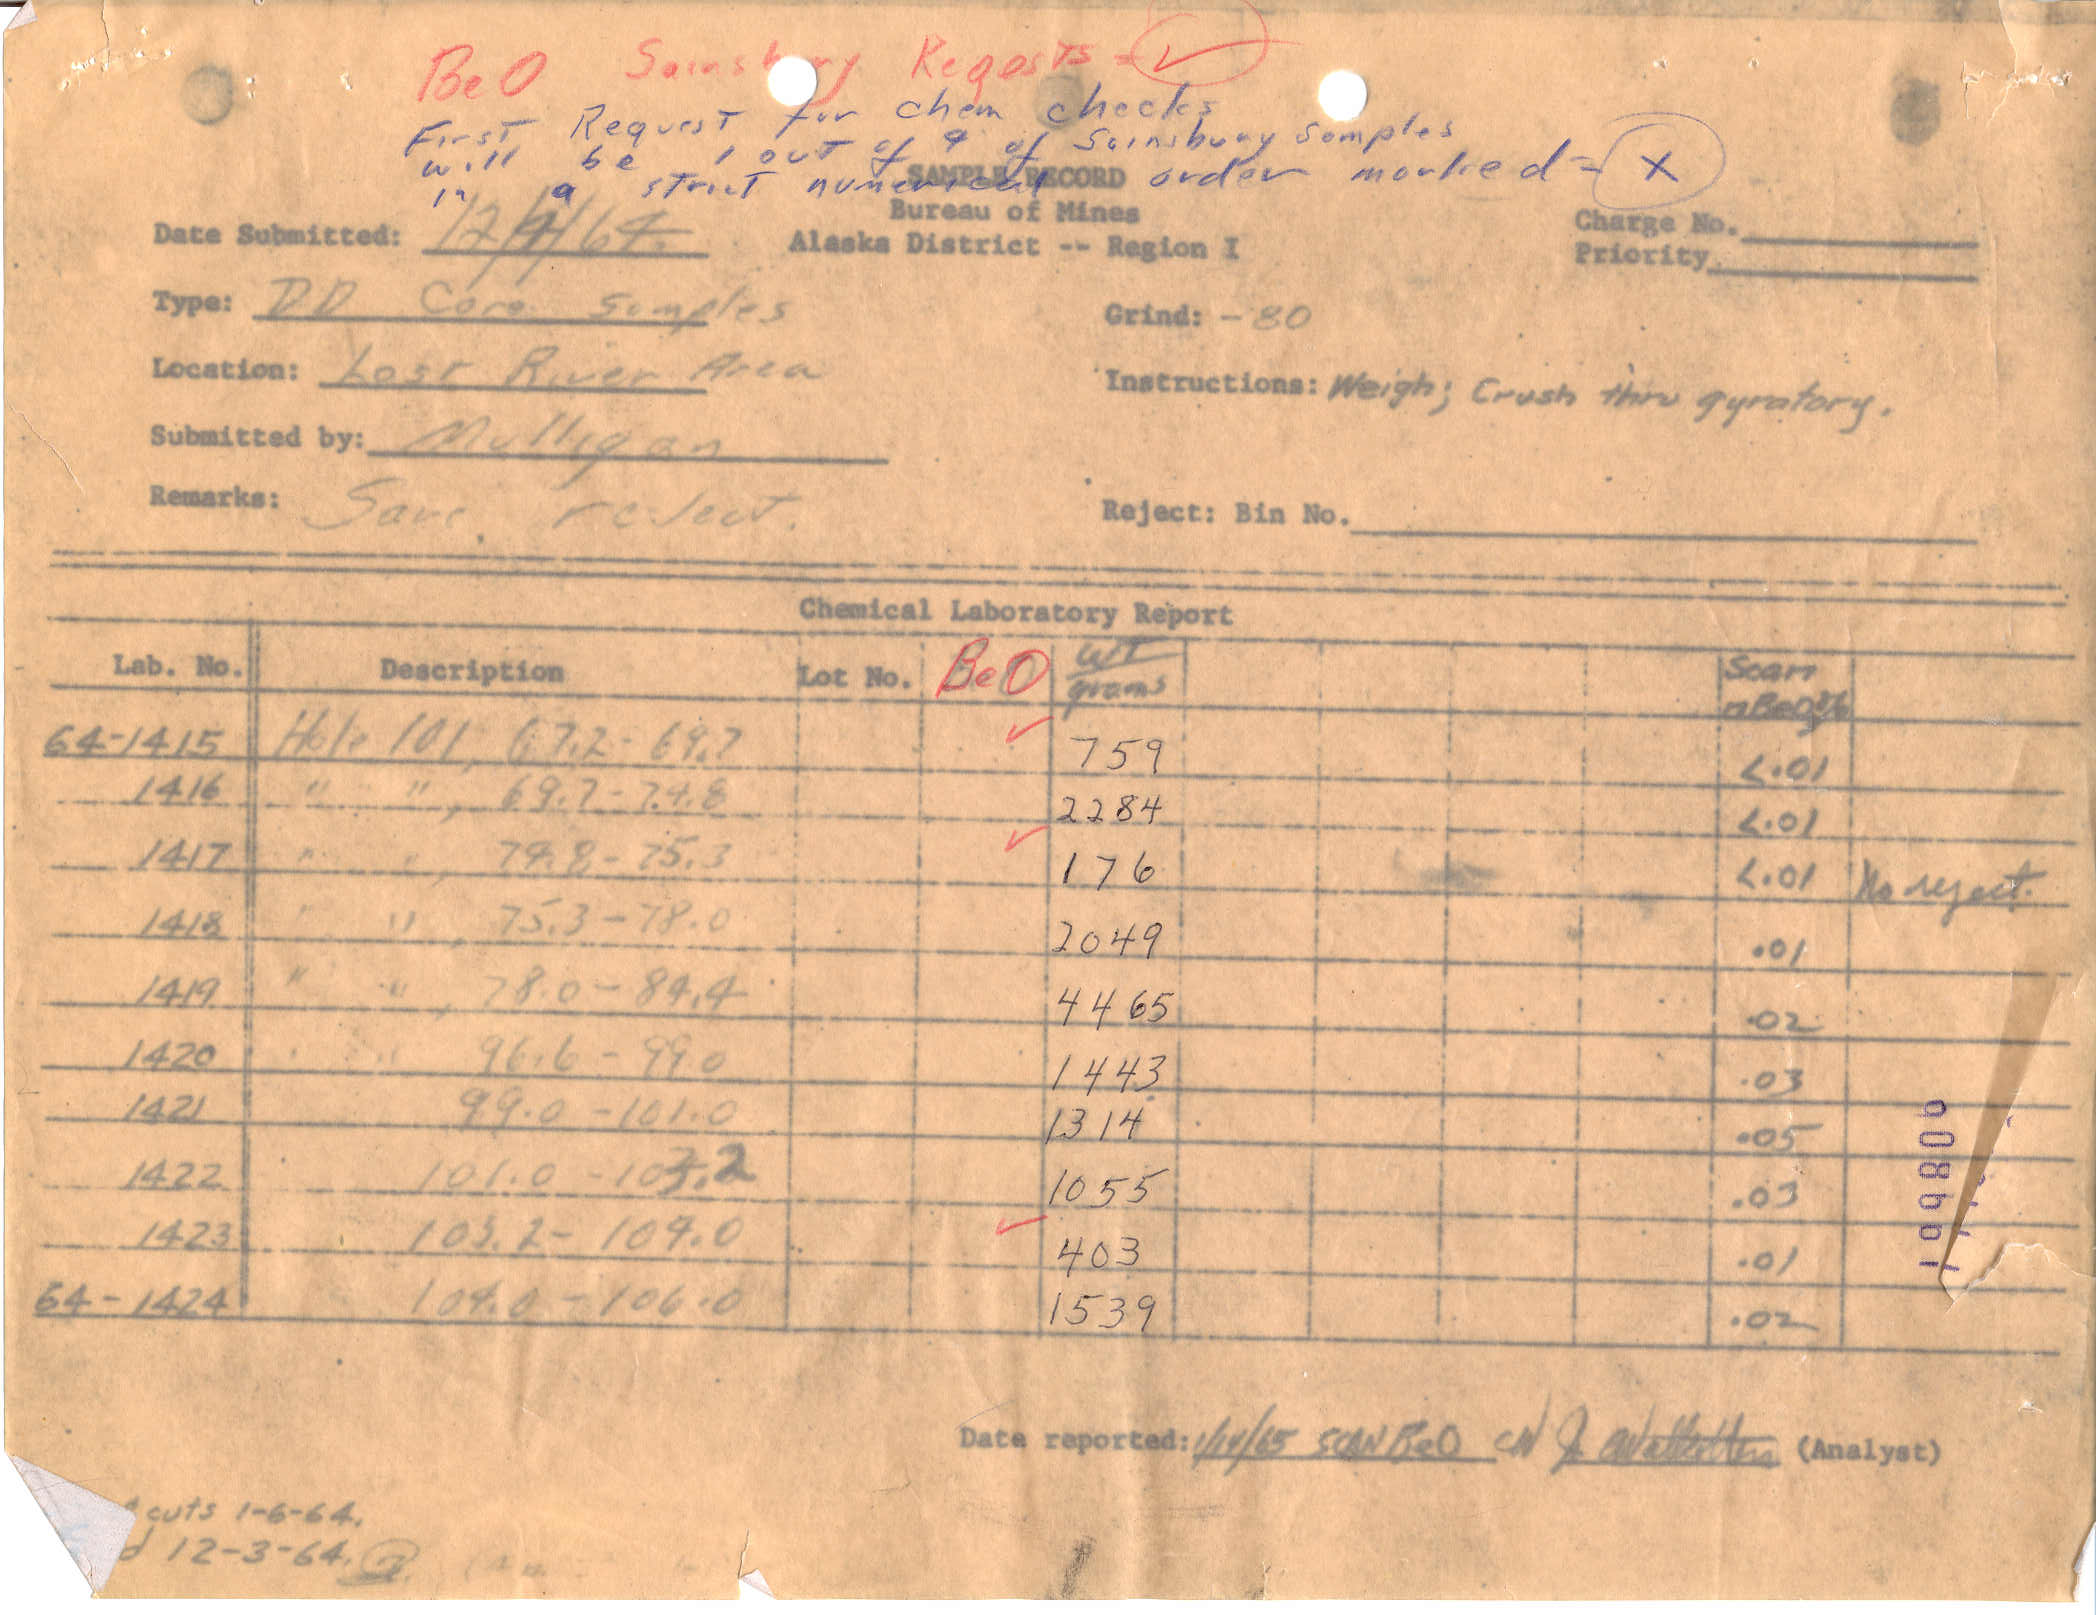 BeO Sainsbury Reqosts = ✓
First Request for chem checks
will be 1 out of 4 of Sainsbury Samples
in a strict numerical order marked = X
SAMPLE RECORD
Bureau of Mines
Alaska District -- Region I
Charge No.
Priority
Date Submitted: 12/4/64
Type: DD Core Samples
Grind: -80
Location: Lost River Area
Instructions: Weigh; Crush thru gyratory.
Submitted by: Mulligan
Remarks: Save reject.
Reject: Bin No.
Chemical Laboratory Report
Lab. No. Description Lot No. BeO WT grams Scan % BeO
64-1415 Hole 101, 67.2-69.7 ✓ 759 <.01
1416 " ", 69.7-74.8 2284 <.01
1417 " ", 74.8-75.3 ✓ 176 <.01 No reject.
1418 " ", 75.3-78.0 2049 .01
1419 " ", 78.0-84.4 4465 .02
1420 " " 96.6-99.0 1443 .03
1421 99.0-101.0 1314 .05
1422 101.0-103.2 1055 .03
1423 103.2-104.0 ✓ 403 .01
64-1424 104.0-106.0 1539 .02
199806
Date reported: 1/14/65 SCAN BeO (Analyst)
cuts 1-6-64.
d 12-3-64.